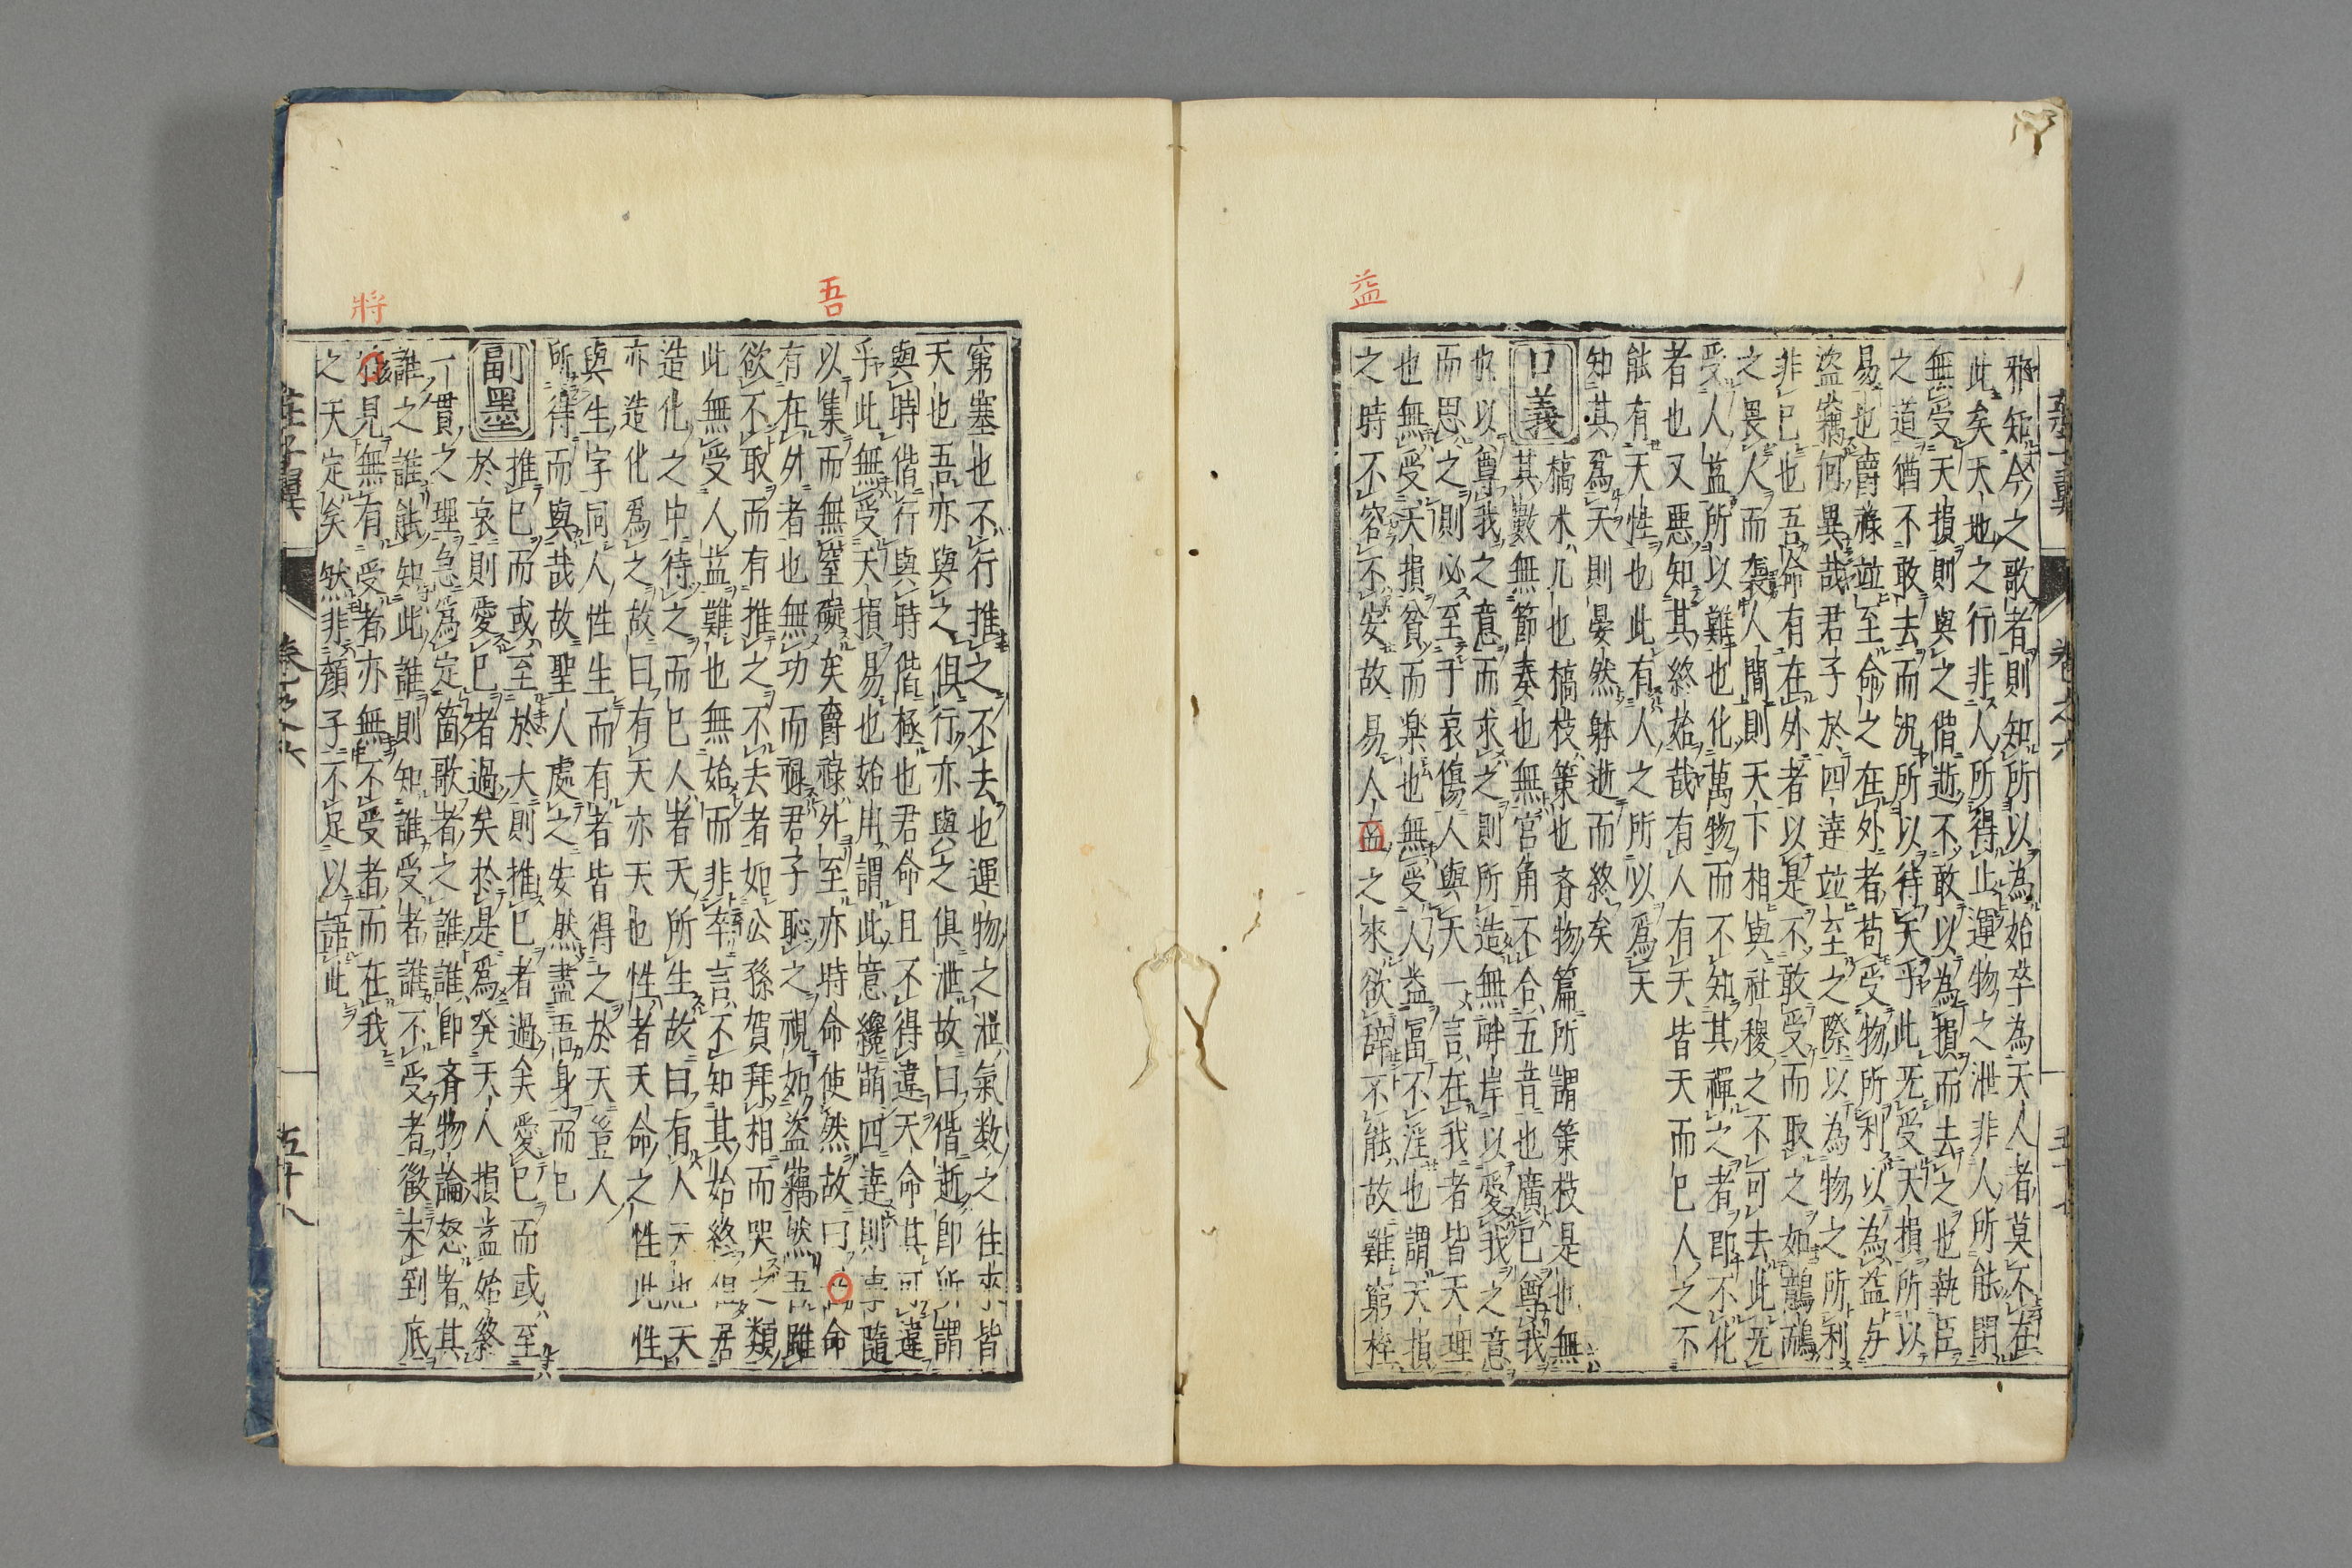 益
邪知今之歌者則知所以為始卒為天人者莫不在
此矣天地之行非人所得止運物之泄非人所能閉
無受天損則與之偕逝不敢以為損而去之也執臣
之道猶不敢去而況所以待天乎此无受天損所以
易也爵祿並至命之在外者苟受物所利以為益与
盜竊何異哉君子於四達並至之際以為物之所利
非已也吾命有在外者以是不敢受而取之如鷾鴯
之畏人而襲人間則天下相與社稷之不可去此无
受人益所以難也化萬物而不知其禪之者即不化
者也又惡知其終始哉有人有天皆天而已人之不
能有天性也此有人之所以為天
知其為天則晏然躰逝而終矣
槁木几也槁枝策也齊物篇所謂策枝是也無
口義其數無節奏也無宮角不合五音也廣已尊我
也以尊我之意而求之則所造無畔岸以愛我之意
而思之則必至于哀傷人與天一言在我者皆天理
也無受天損貧而楽也無受人益冨不淫也謂天損
之時不容不安故易人益之來欲辞不能故難窮桎
莊子翼 卷之六 五十七
吾
將
窮塞也不行推之不去也運物之泄氣数之往來皆
天也吾亦與之俱行亦與之俱泄故曰偕逝即所謂
與時偕行與時偕極也君命且不得違天命其可違
乎此無受天損易也始用謂此意纔萌四達則事隨
以集而無窒礙矣爵祿外至亦時命使然故曰命
有在外者也無功而祿君子恥之視如盜竊然吾雖
欲不取而有推之不去者如公孫賀拜相而哭之類
此無受人益難也無始而非卒言不知其始終但居
造化之中待之而已人者天所生故曰有人天也天
亦造化為之故曰有天亦天也性者天命之性此性
與生字同人性生而有者皆得之於天豈人
所得而與哉故聖人處之安然盡吾身而已
推已而或至於大則推已者過矣愛已而或至
副墨於哀則愛已者過矣於是為発天人損益始終
一貫之理急為定箇歌者之誰誰即齊物論怒者其
誰之誰能知此誰則知誰受者誰不受者徹未到底
見無有受者亦無不受者而在我
之天定矣然非顏子不足以語此
莊子翼 卷之六 五十八